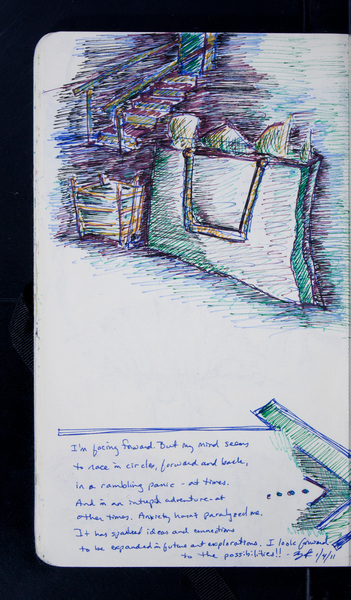 I'm facing foward. But my mind seems
to race in circles, forward and back,
in a rambling panic - at times.
And in an intrepid adventure - at
other times. Anxiety hasnt paralyzed me.
It has sparked ideas and connections
to be expanded in future art explorations. I look forward
to the possibilities!! - 1/9/11